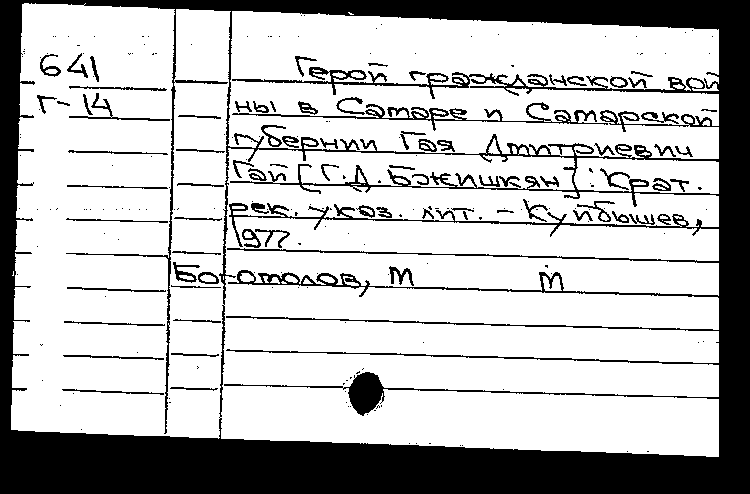 641 Герой гражданской вой
Г-14 ны в Самаре и Самарской
губернии Гая Дмитриевич
Гай [Г.Д. Бжишкян]: Крат.
рек. указ. лит. - Куйбышев,
1977.
Боготолов, М М